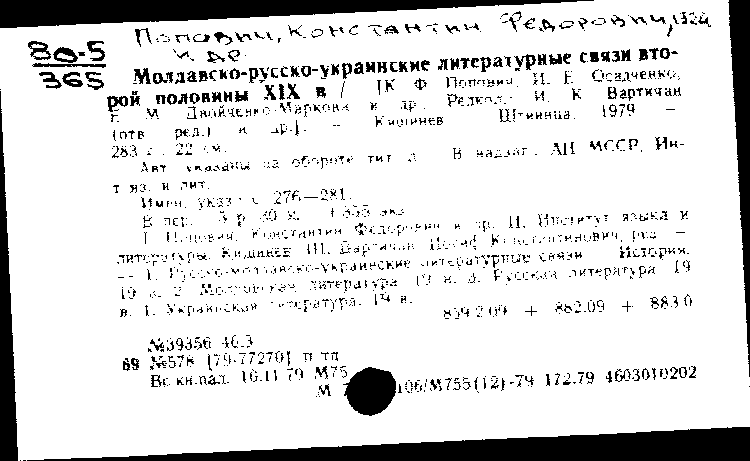 80-5
365
Попович, Константин Федорович, 1924
и др.
Молдавско-русско-украинские литературные связи вто-
рой половины XIX в / [К Ф Попович, И. Е Осадченко,
Е М Двойченко-Маркова и др. Редкол.: И. К Вартичан
(отв ред.) и др.]. – Кишинев Штиинца, 1979 –
283 с, 22 см.
Авт. указаны на обороте тит л В надзаг.: АН МССР, Ин-
т яз. и лит.
Имен. указ.: с 276—281.
В пер. 3 р
I. Попович, Константин Федорович и др. II. Институт языка и
литературы, Кишинев III. Вартичан Иосиф Константинович, ред —
— 1. Русско-молдавско-украинские литературные связи История,
19 в. 2 Молдавская литература 19 в. 3. Русская литература 19
в. 4. Украинская литература, 19 в.
859.2.09 + 882.09 + 883.0
№39356 46.3
69 №578 [79-77270] п тп
Вс кн.пал. 16.11 79 М75
М 106/М755(12)-79 172.79 4603010202